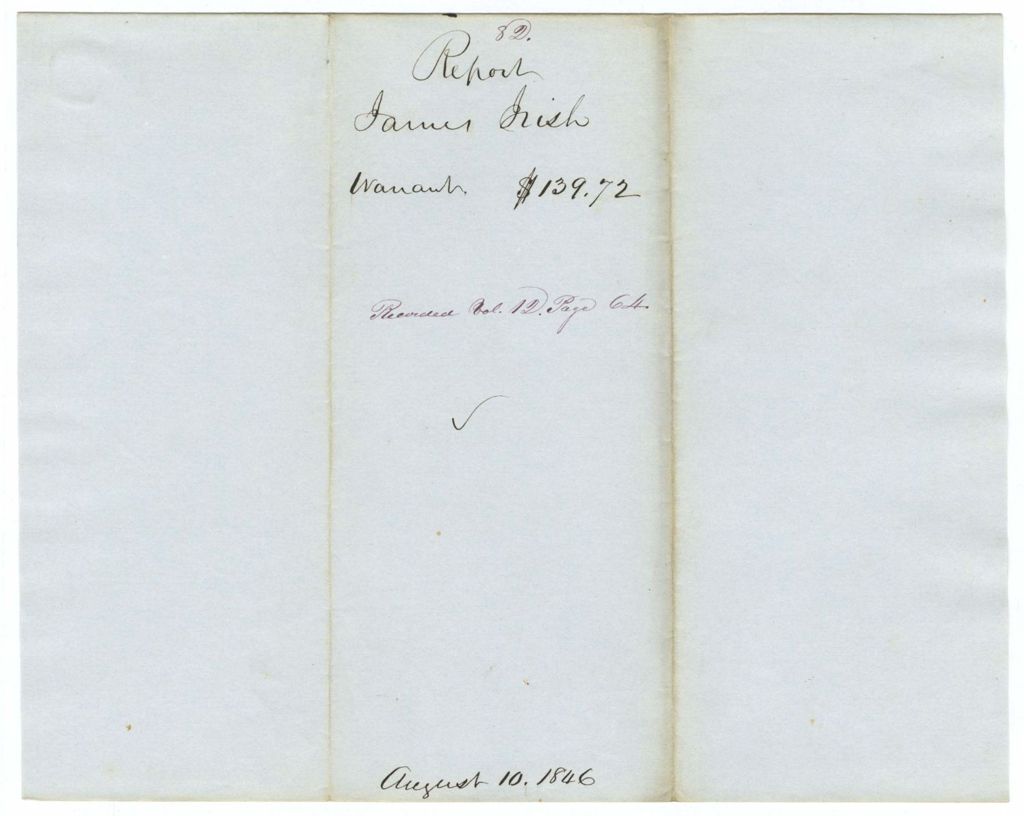 82.
Report
James Irish
Warrant $139.72
Recorded Vol. 12. Page 64
August 10. 1846